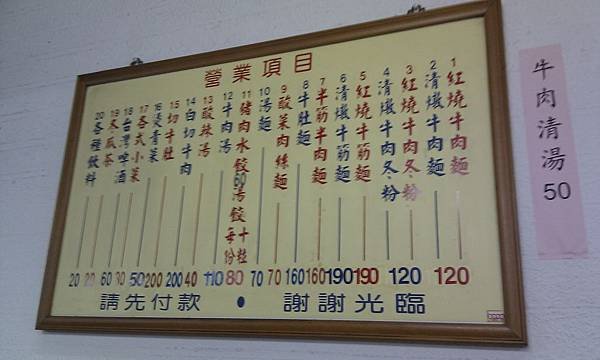 營業項目
1 紅燒牛肉麵
2 清燉牛肉麵
3 紅燒牛肉冬粉
4 清燉牛肉冬粉
5 紅燒牛筋麵
6 清燉牛筋麵
7 半筋半肉麵
8 牛肚麵
9 酸菜肉絲麵
10 湯麵
11 豬肉水餃湯餃十粒每份
12 牛肉湯 60
13 酸辣湯
14 白切牛肉
15 切牛肚
16 燙青菜
17 各式小菜
18 台灣啤酒
19 冬瓜茶
20 各種飲料
20 20 60 30 50 200 200 40 110 80 70 70 160 160 190 190 120 120
請先付款 • 謝謝光臨
牛肉清湯 50